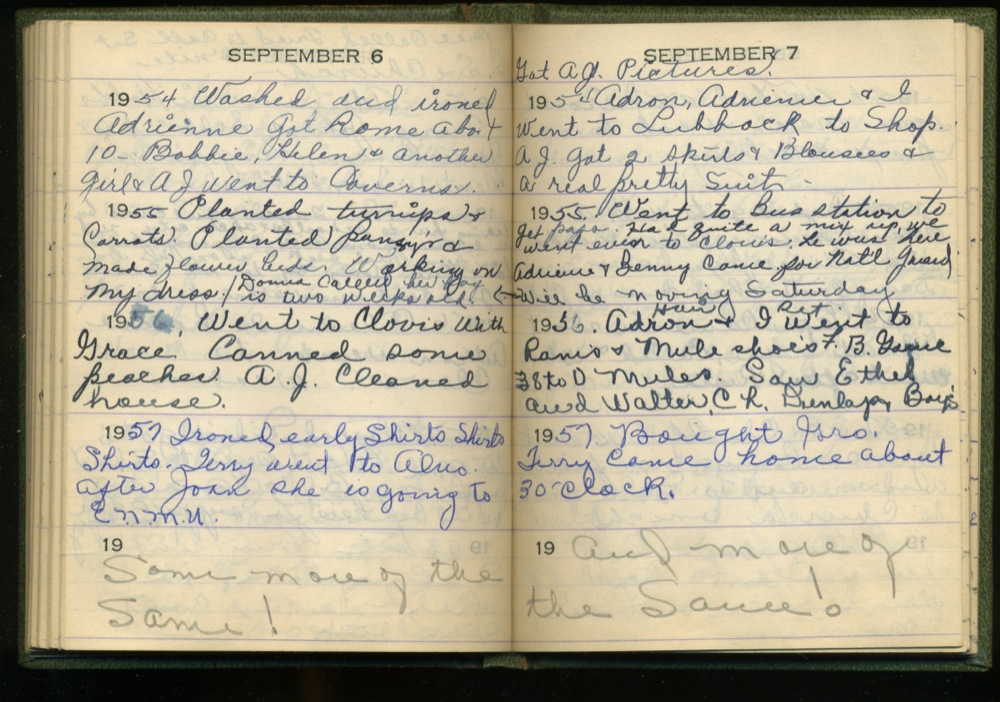 SEPTEMBER 6
1954 Washed and ironed
Adrienne got home about
10- Bobbie, Helen & another
girl & A J went to Caverns.
1955 Planted turnips &
Carrots. Planted &
made flower beds. Working on
my dress. / Donna Called her boy
is two weeks old.
1956. Went to Clovis With
Grace. Canned some
peaches. A. J. Cleaned
house.
1957 Ironed, early Shirts Shirts
Shirts. Terry went to
after Joan she is going to
E.N.M.U.
19
Some more of the
Same!
SEPTEMBER 7
Got A J. Pictures.
1954 Adron, Adrienne & I
Went to Lubbock to Shop.
A J. got 2 skirts & Blouses &
a real pretty Suit.
1955. Went to Bus station to
get papa. Had quite a mix up, we
went over to Clovis. He was here
Adrienne & Benny Came for Natl Guard
← Will be moving Saturday
1956. Adron & I Went to
Muleshoe's F. B. Game
38 to 0 Mules. Saw Ethel
and Walter, C R. Dunlap, Boys.
1957. Bought Gro.
Terry Came home about
3 o'clock.
19 And more of
the Same!